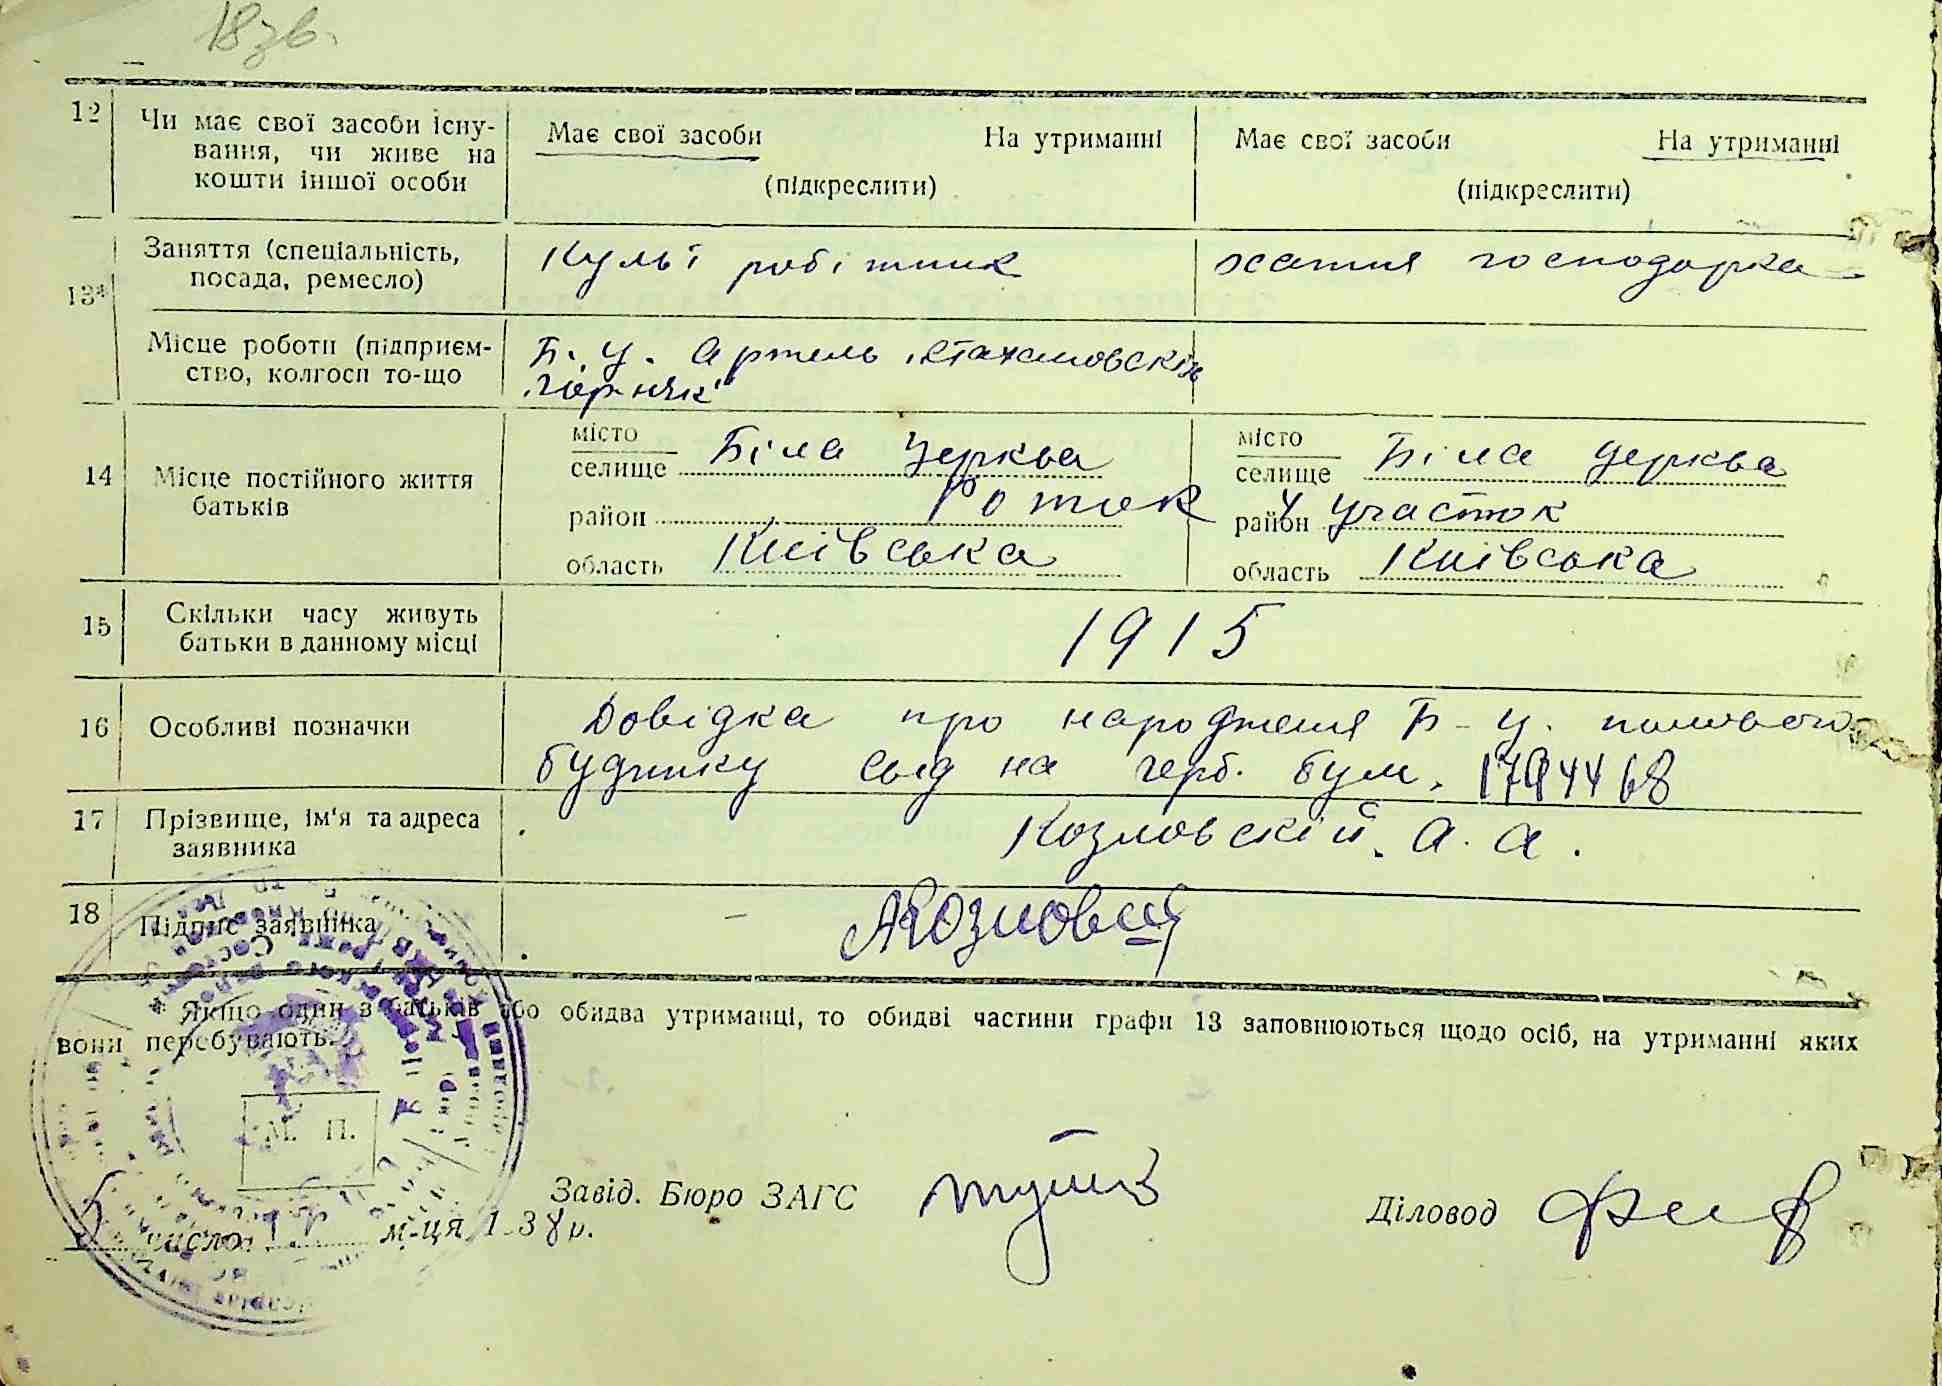 18зв.
12 Чи має свої засоби існу-
вання, чи живе на
кошти іншої особи
Має свої засоби На утриманні
(підкреслити)
Має свої засоби На утриманні
(підкреслити)
13*
Заняття (спеціальність,
посада, ремесло)
Культ робітник
хатня господарка
Місце роботи (підприєм-
ство, колгосп то-що
Б. Ц. Артель „Стахановскій
горняк"
14 Місце постійного життя
батьків
місто
селище Біла Церква
район Роток
область Київська
місто
селище Біла Церква
район 4 участок
область Київська
15 Скільки часу живуть
батьки в данному місці
1915
16 Особливі позначки
Довідка про народження Б-Ц. полового
будинку на герб. бум.
17 Прізвище, ім'я та адреса
заявника
Козловскій. А. А.
18 Підпис заявника
АКозловскій
Якщо один з батьків або обидва утриманці, то обидві частини графи 13 заповнюються щодо осіб, на утриманні яких
вони перебувають.
М. П.
Завід. Бюро ЗАГС
Діловод
число м-ця 1938 р.